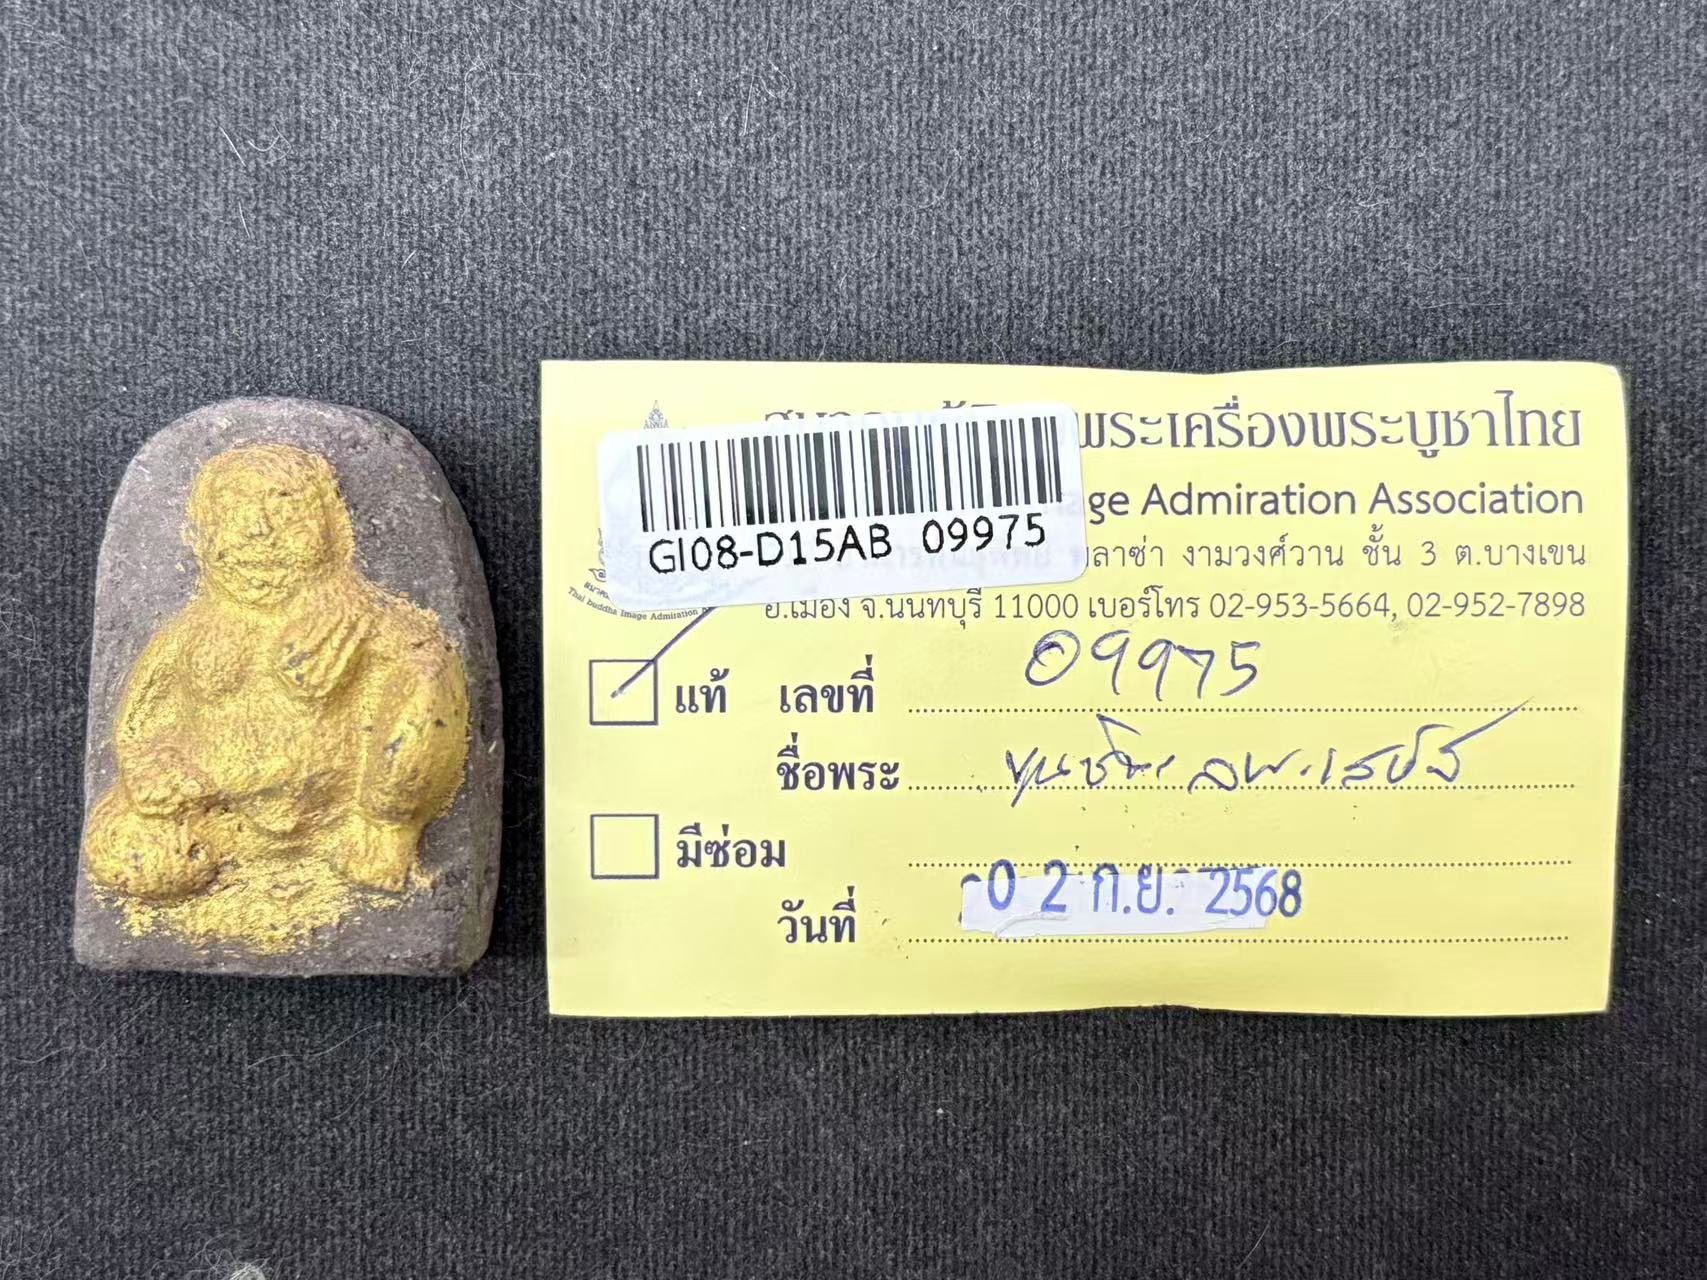 พระเครื่องพระบูชาไทย
age Admiration Association
GI08-D15AB 09975
ลาซ่า งามวงศ์วาน ชั้น 3 ต.บางเขน
Thai buddha Image Admiration
อ.เมือง จ.นนทบุรี 11000 เบอร์โทร 02-953-5664, 02-952-7898
แท้ เลขที่ 09975
ชื่อพระ ขุนช้าง
มีซ่อม
วันที่ 02 ก.ย. 2568